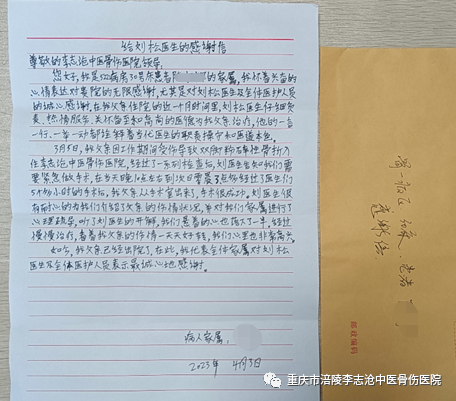 给刘松医生的感谢信
尊敬的李志沧中医骨伤医院领导:
您好,我是522病房30号床患者的家属,我怀着兴奋的
心情表达对贵院的无限感谢,尤其是对刘松医生及全体医护人员
的诚心感谢,在我父亲住院的近一个月时间里,刘松医生仔细负
责,热情服务,关怀备至和高尚的医德为我父亲治疗,他的一言
一行、一举一动都诠释着当代医生的职责操守和医道本色。
3月5号,我父亲因工作期间受伤导致双侧跟骨粉碎性骨折入
住李志沧中医骨伤医院,经过了一系列检查后,刘医生告知我们需
要紧急做手术,在当天晚10点左右到次日凌晨了
5个多小时的手术后,我父亲从手术室出来,手术很成功,刘医生很
有耐心的为我们介绍了父亲的伤情状况,并对我们家属进行了
心理疏导,听了刘医生的开解,我们悬着的心也落下了一半,经过
慢慢治疗,看着我父亲的伤情一天天好转,我们心里也非常高兴。
如今,我父亲已经出院了,在此,我代表全体家属对刘松
医生及全体医护人员表示最诚心地感谢。
病人家属:
2023年 4月3日
邮政编码
重庆市涪陵李志沧中医骨伤医院